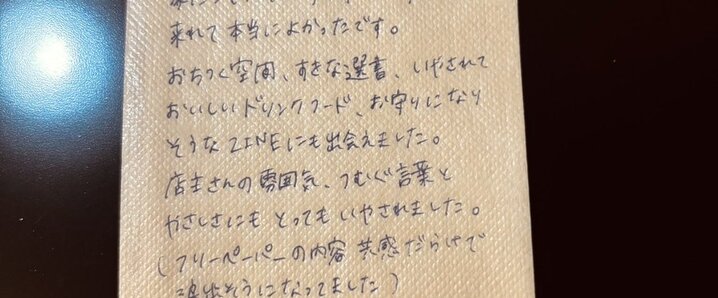 来れて本当によかったです。
おちつく空間、すきな選書、いやされて
おいしいドリンクフード、お守りになり
そうなZINEにも出会えました。
店主さんの雰囲気、つむぐ言葉と
やさしさにも とっても いやされました。
(フリーペーパーの内容 共感だらけで
そうになってました)